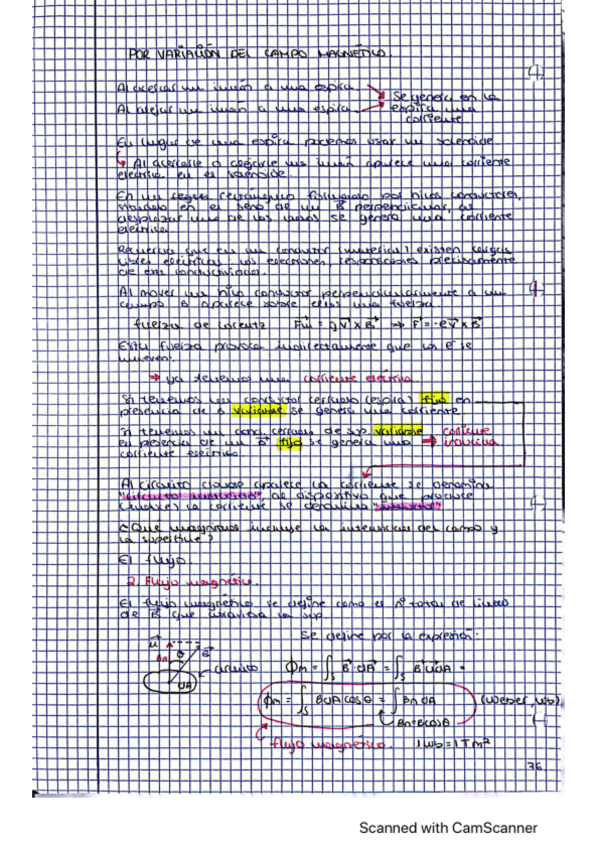 POR VARIACIÓN DEL CAMPO MAGNÉTICO.
Al acercar un imán a una espira
Al alejar un imán a una espira
Se genera en la
espira una
corriente
En lugar de una espira podemos usar un solenoide
Al acercarle o alejarle un imán aparece una corriente
eléctrica en el solenoide.
En un rectángulo formado por hilos conductores,
situado en el seno de un B⃗ perpendicular, al
desplazar uno de los lados se genera una corriente
eléctrica.
Recuerda que en un conductor (material) existen cargas
libres eléctricas, los electrones, responsables precisamente
de esta conductividad.
Al mover un hilo conductor perpendicularmente a un
campo B aparece sobre ellos una fuerza
fuerza de Lorentz F⃗m = q V⃗ x B⃗ ⇒ F = -e V⃗ x B⃗
Esta fuerza provoca indirectamente que los e⁻ se
mueven.
→ ya tenemos una corriente eléctrica.
Si tenemos un conductor cerrado (espira) fijo en
presencia de B variable se genera una corriente
Si tenemos un cond. cerrado de sup variable
en presencia de un B⃗ fijo se genera una → corriente
inducida
corriente eléctrica
Al circuito donde aparece la corriente se denomina
"circuito inducido" al dispositivo que produce
la corriente se denomina "inductor"
¿Qué magnitud incluye la intensidad del campo y
la superficie?
El flujo.
2. Flujo magnético.
El flujo magnético se define como el nº total de líneas
de B⃗ que atraviesa la sup.
Se define por la expresión:
u⃗ Bn θ B⃗
circuito
dA
ϕm = ∫s B⃗·dA⃗ = ∫s B⃗ u⃗ dA =
ϕm = ∫s B dA cos θ = ∫ Bn dA (Weber, Wb)
Bn = B cos θ
flujo magnético. 1 Wb = 1 T m²
76
Scanned with CamScanner